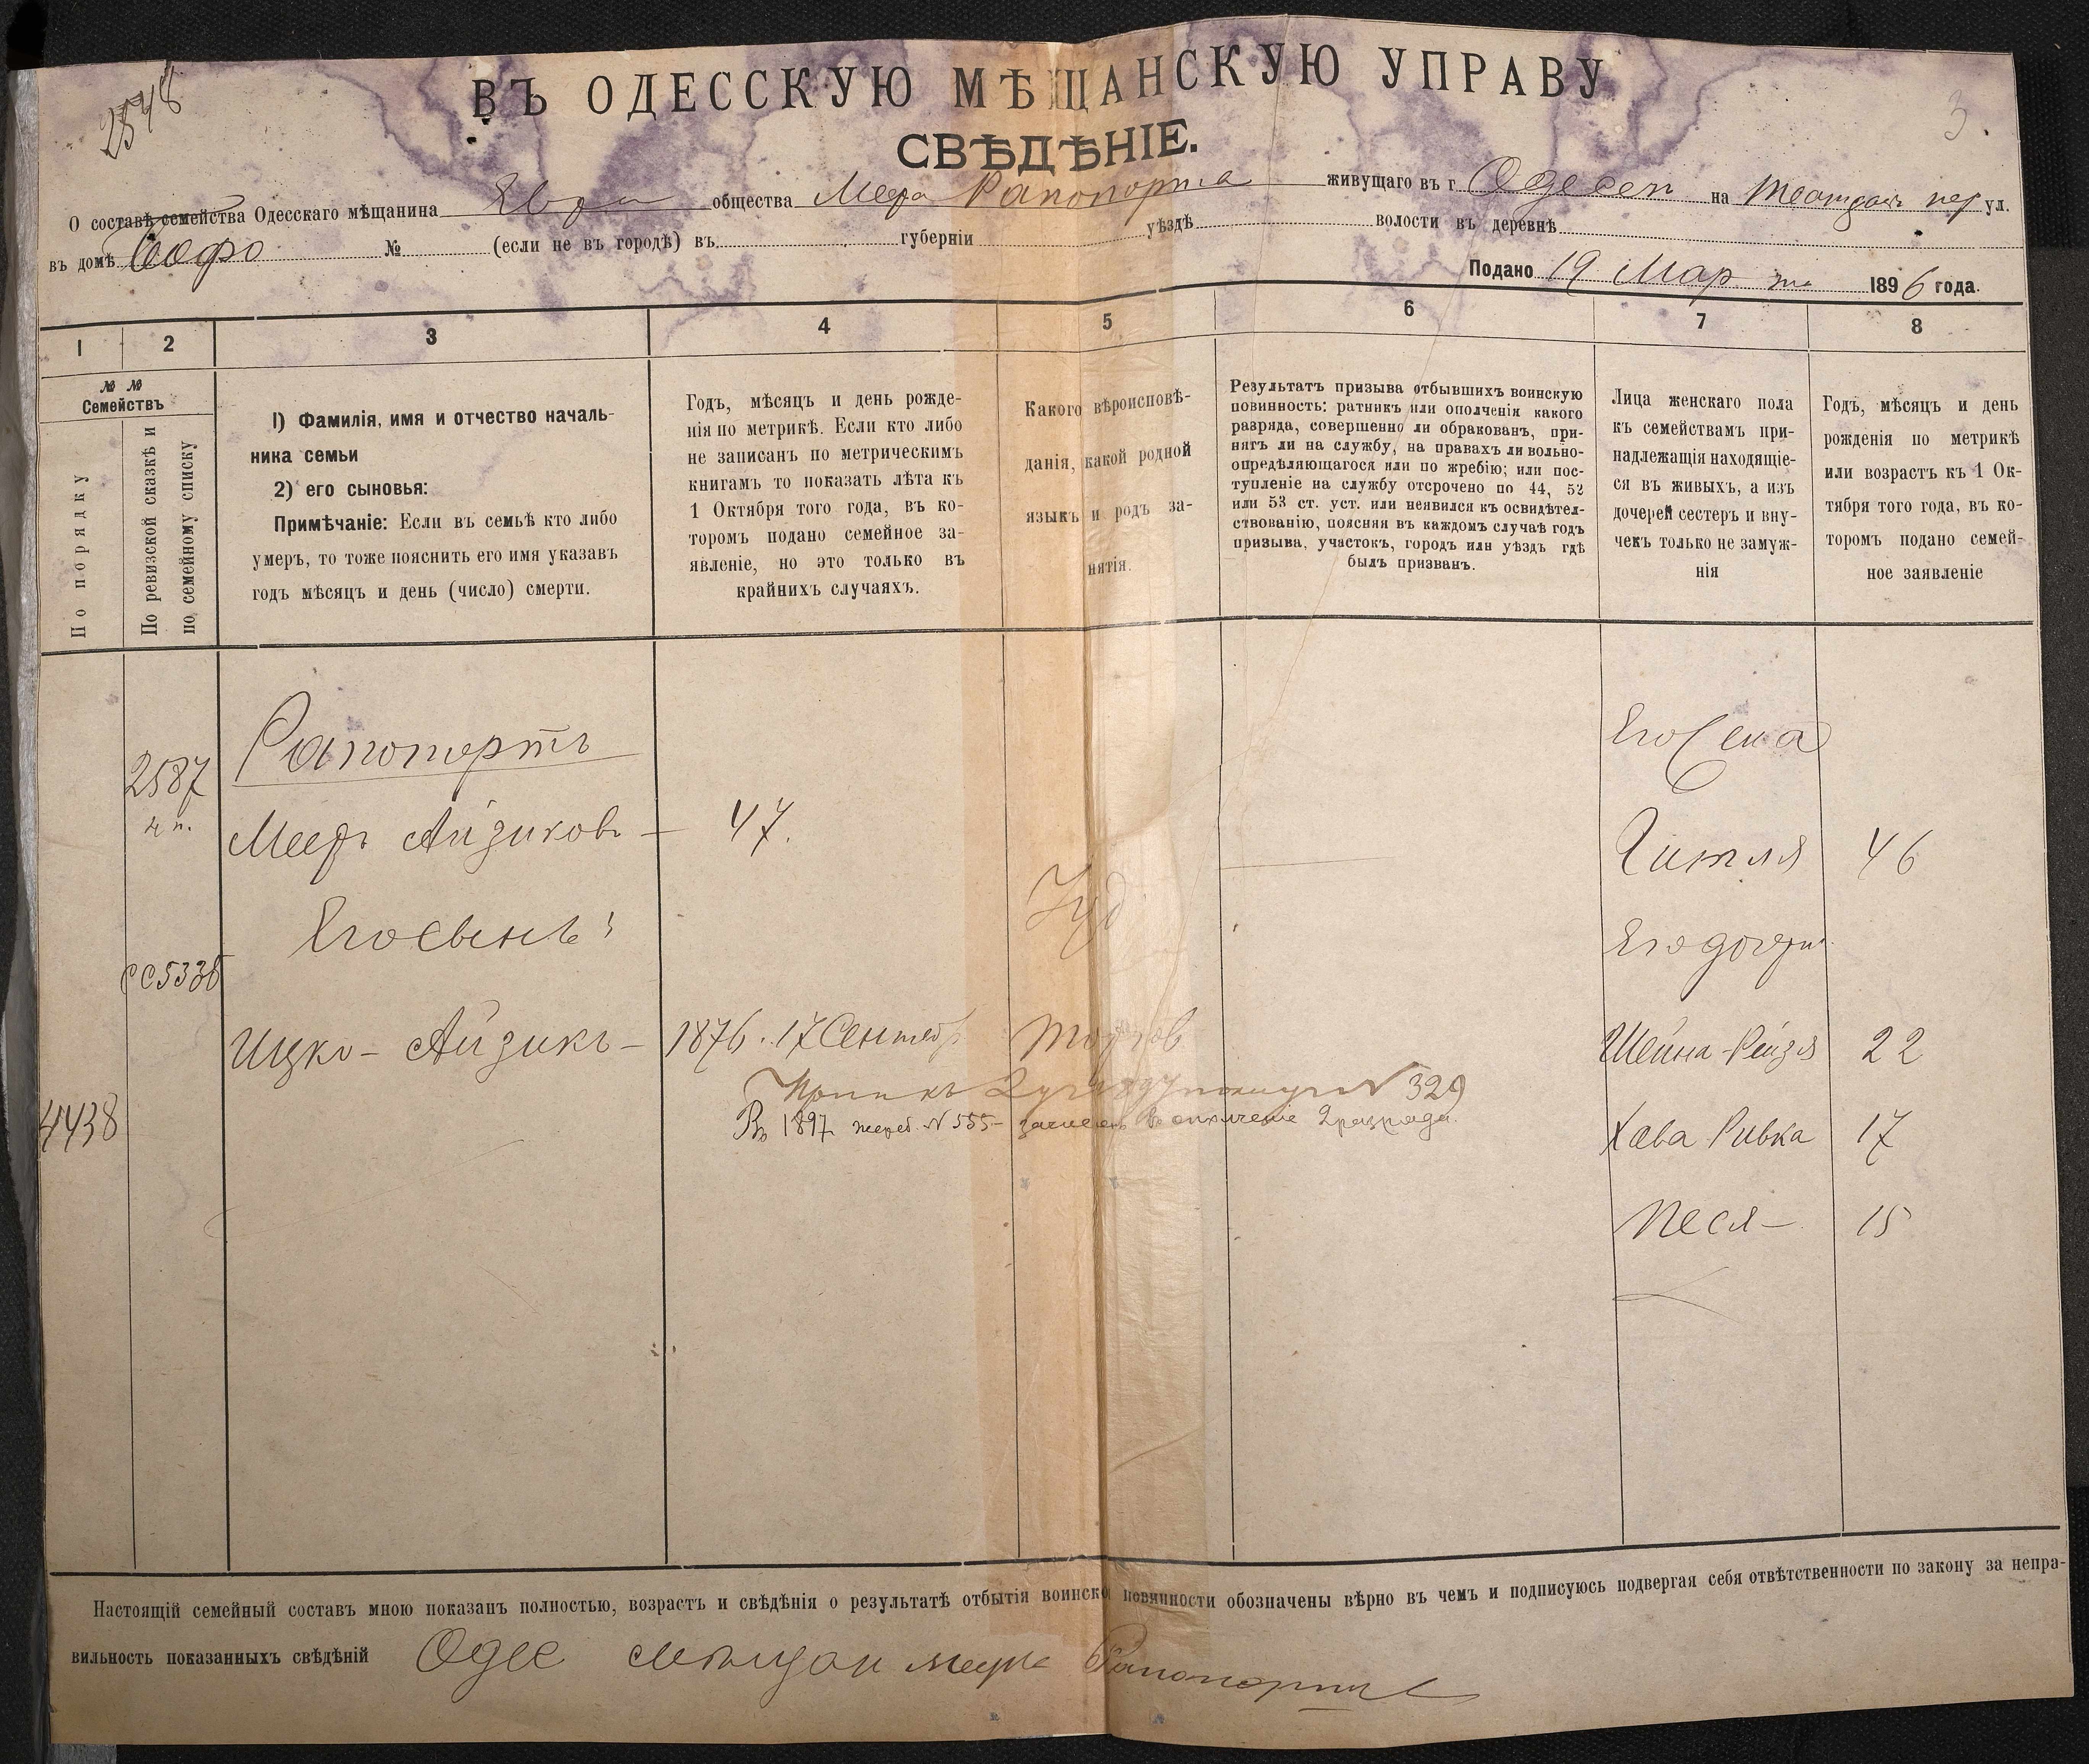 2548
3.
ВЪ ОДЕССКУЮ МѢЩАНСКУЮ УПРАВУ
СВѢДѢНІЕ.
О составѣ семейства Одесскаго мѣщанина Евр общества Меера Рапопорта живущаго въ г. Одессѣ на пер ул.
въ домѣ № (если не въ городѣ) въ губерніи уѣздѣ волости въ деревнѣ
Подано 19 Марта 1896 года.
1 2 3 4 5 6 7 8
№ № Семействъ
По порядку
По ревизской сказкѣ и по семейному списку
1) Фамилія, имя и отчество началь-
ника семьи
2) его сыновья:
Примѣчаніе: Если въ семьѣ кто либо
умеръ, то тоже пояснить его имя указавъ
годъ мѣсяцъ и день (число) смерти.
Годъ, мѣсяцъ и день рожде-
нія по метрикѣ. Если кто либо
не записанъ по метрическимъ
книгамъ то показать лѣта къ
1 Октября того года, въ ко-
торомъ подано семейное за-
явленіе, но это только въ
крайнихъ случаяхъ.
Какого вѣроисповѣ-
данія, какой родной
языкъ и родъ за-
нятія.
Результатъ призыва отбывшихъ воинскую
повинность: ратникъ или ополченія какого
разряда, совершенно ли обракованъ, при-
нятъ ли на службу, на правахъ ли вольно-
опредѣляющагося или по жребію; или пос-
тупленіе на службу отсрочено по 44, 52
или 53 ст. уст. или неявился къ освидѣтел-
ствованію, поясняя въ каждомъ случаѣ годъ
призыва, участокъ, городъ или уѣздъ гдѣ
былъ призванъ.
Лица женскаго пола
къ семействамъ при-
надлежащія находящіе-
ся въ живыхъ, а изъ
дочерей сестеръ и вну-
чекъ только не замуж-
нія
Годъ, мѣсяцъ и день
рожденія по метрикѣ
или возрастъ къ 1 Ок-
тября того года, въ ко-
торомъ подано семей-
ное заявленіе
Рапопортъ
2587
Мееръ Айзиковъ — 47.
Его сынъ:
СС5335
Ицко - Айзикъ — 1876. 17 Сентяб
Іуд
Торгов
№ 329
Въ 1897 жереб. № 555 — зачисленъ въ ополченіе 2 разряда.
4438
Его жена
Гитля 46
Его дочери
Шейна-Рейзя 22
Хава Ривка 17
Песя — 15
Настоящій семейный составъ мною показанъ полностью, возрастъ и свѣдѣнія о результатѣ отбытія воинской повинности обозначены вѣрно въ чемъ и подписуюсь подвергая себя отвѣтственности по закону за непра-
вильность показанныхъ свѣдѣній Одес мѣщан Рапопортъ